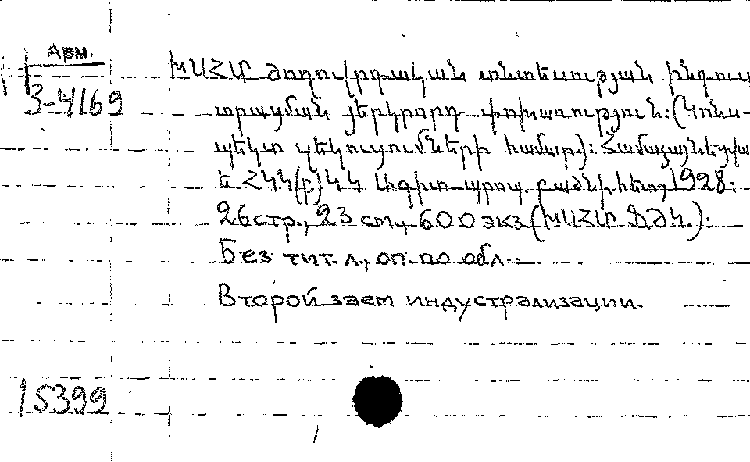 Арм.
3-4169
ԽՍՀՄ ժողովրդական տնտեսության ինդուս-
տրացման յերկրորդ փոխառություն: (Կոնս-
պեկտ զեկուցումների համար): Համաձայնեցրա
է ՀԿԿ(բ)ԿԿ Ագիտ-պրոպ. բաժնի հետ, 1928.
26 стр., 23 см., 600 экз (ԽՍՀՄ ՖԺԿ.).
Без тит. л., оп. по обл.
Второй заем индустрализации.
15399